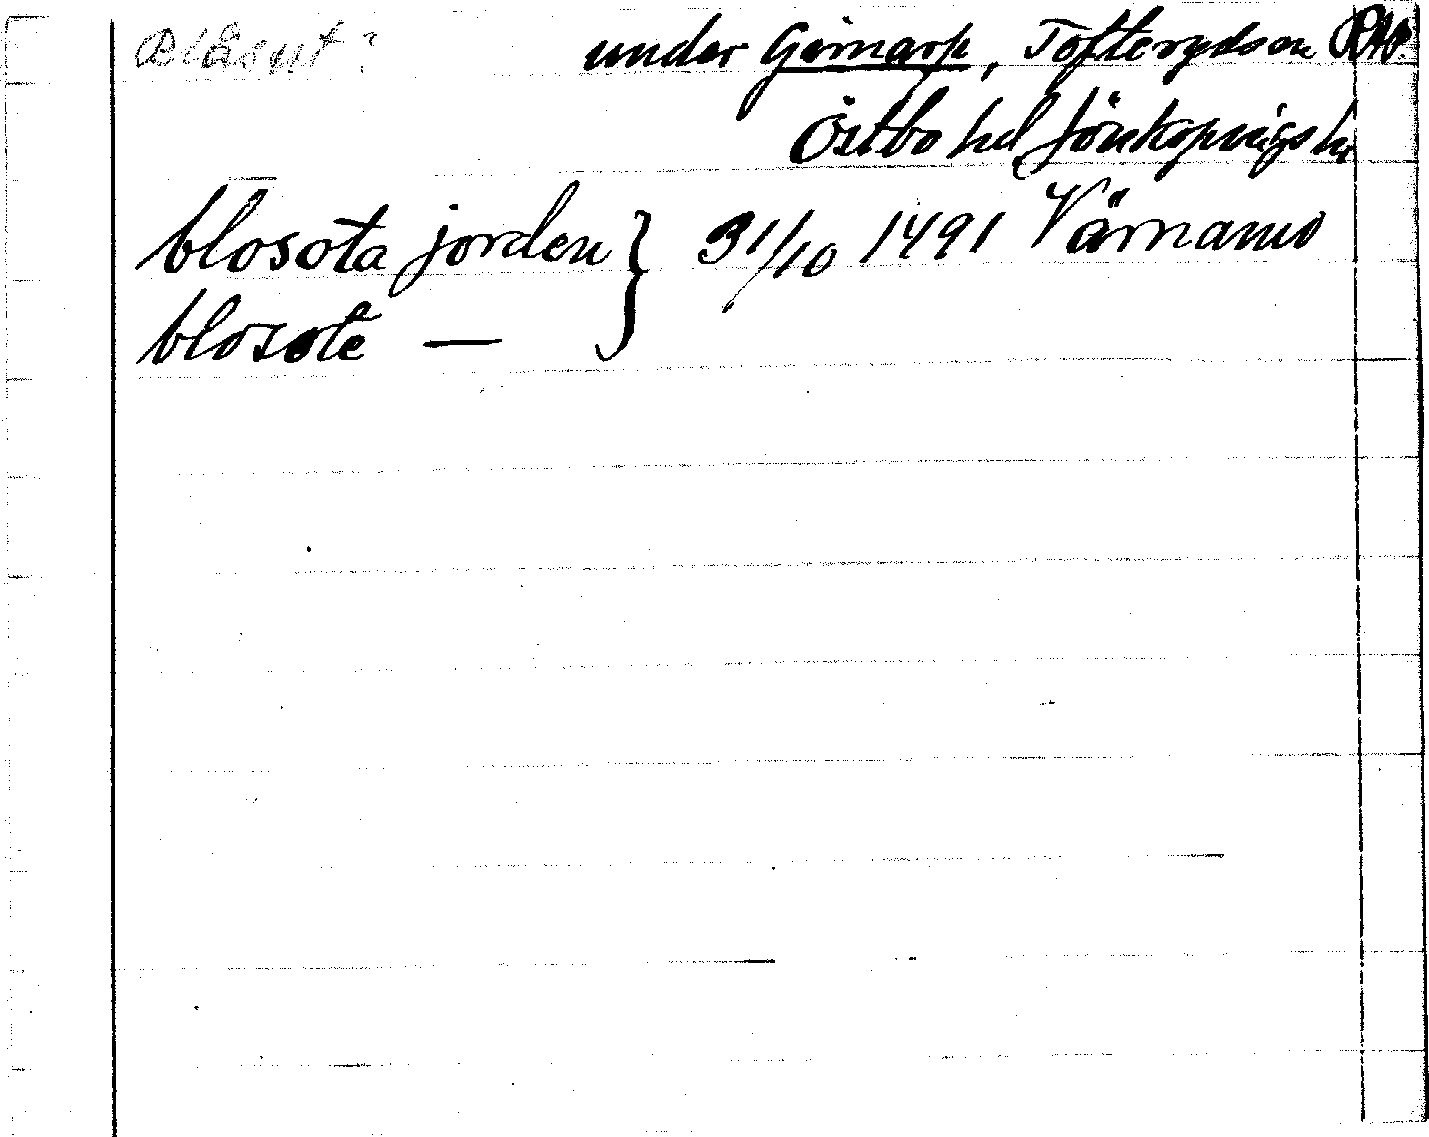 Blåsut? under Gimarp, Toftaryds sn RAP.
Östbo hd Jönköpings ln
blosota jorden } 31/10 1491 Värnamo
blosote —